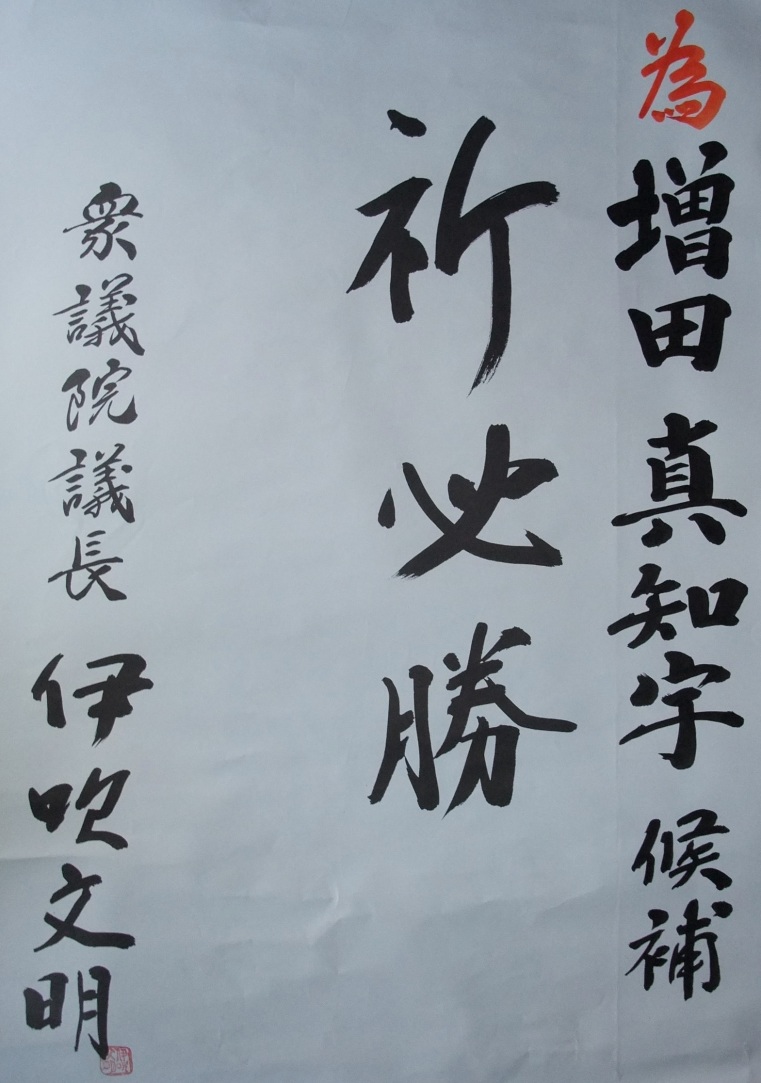 為 増田 真知宇 候補
祈必勝
衆議院議長 伊吹文明